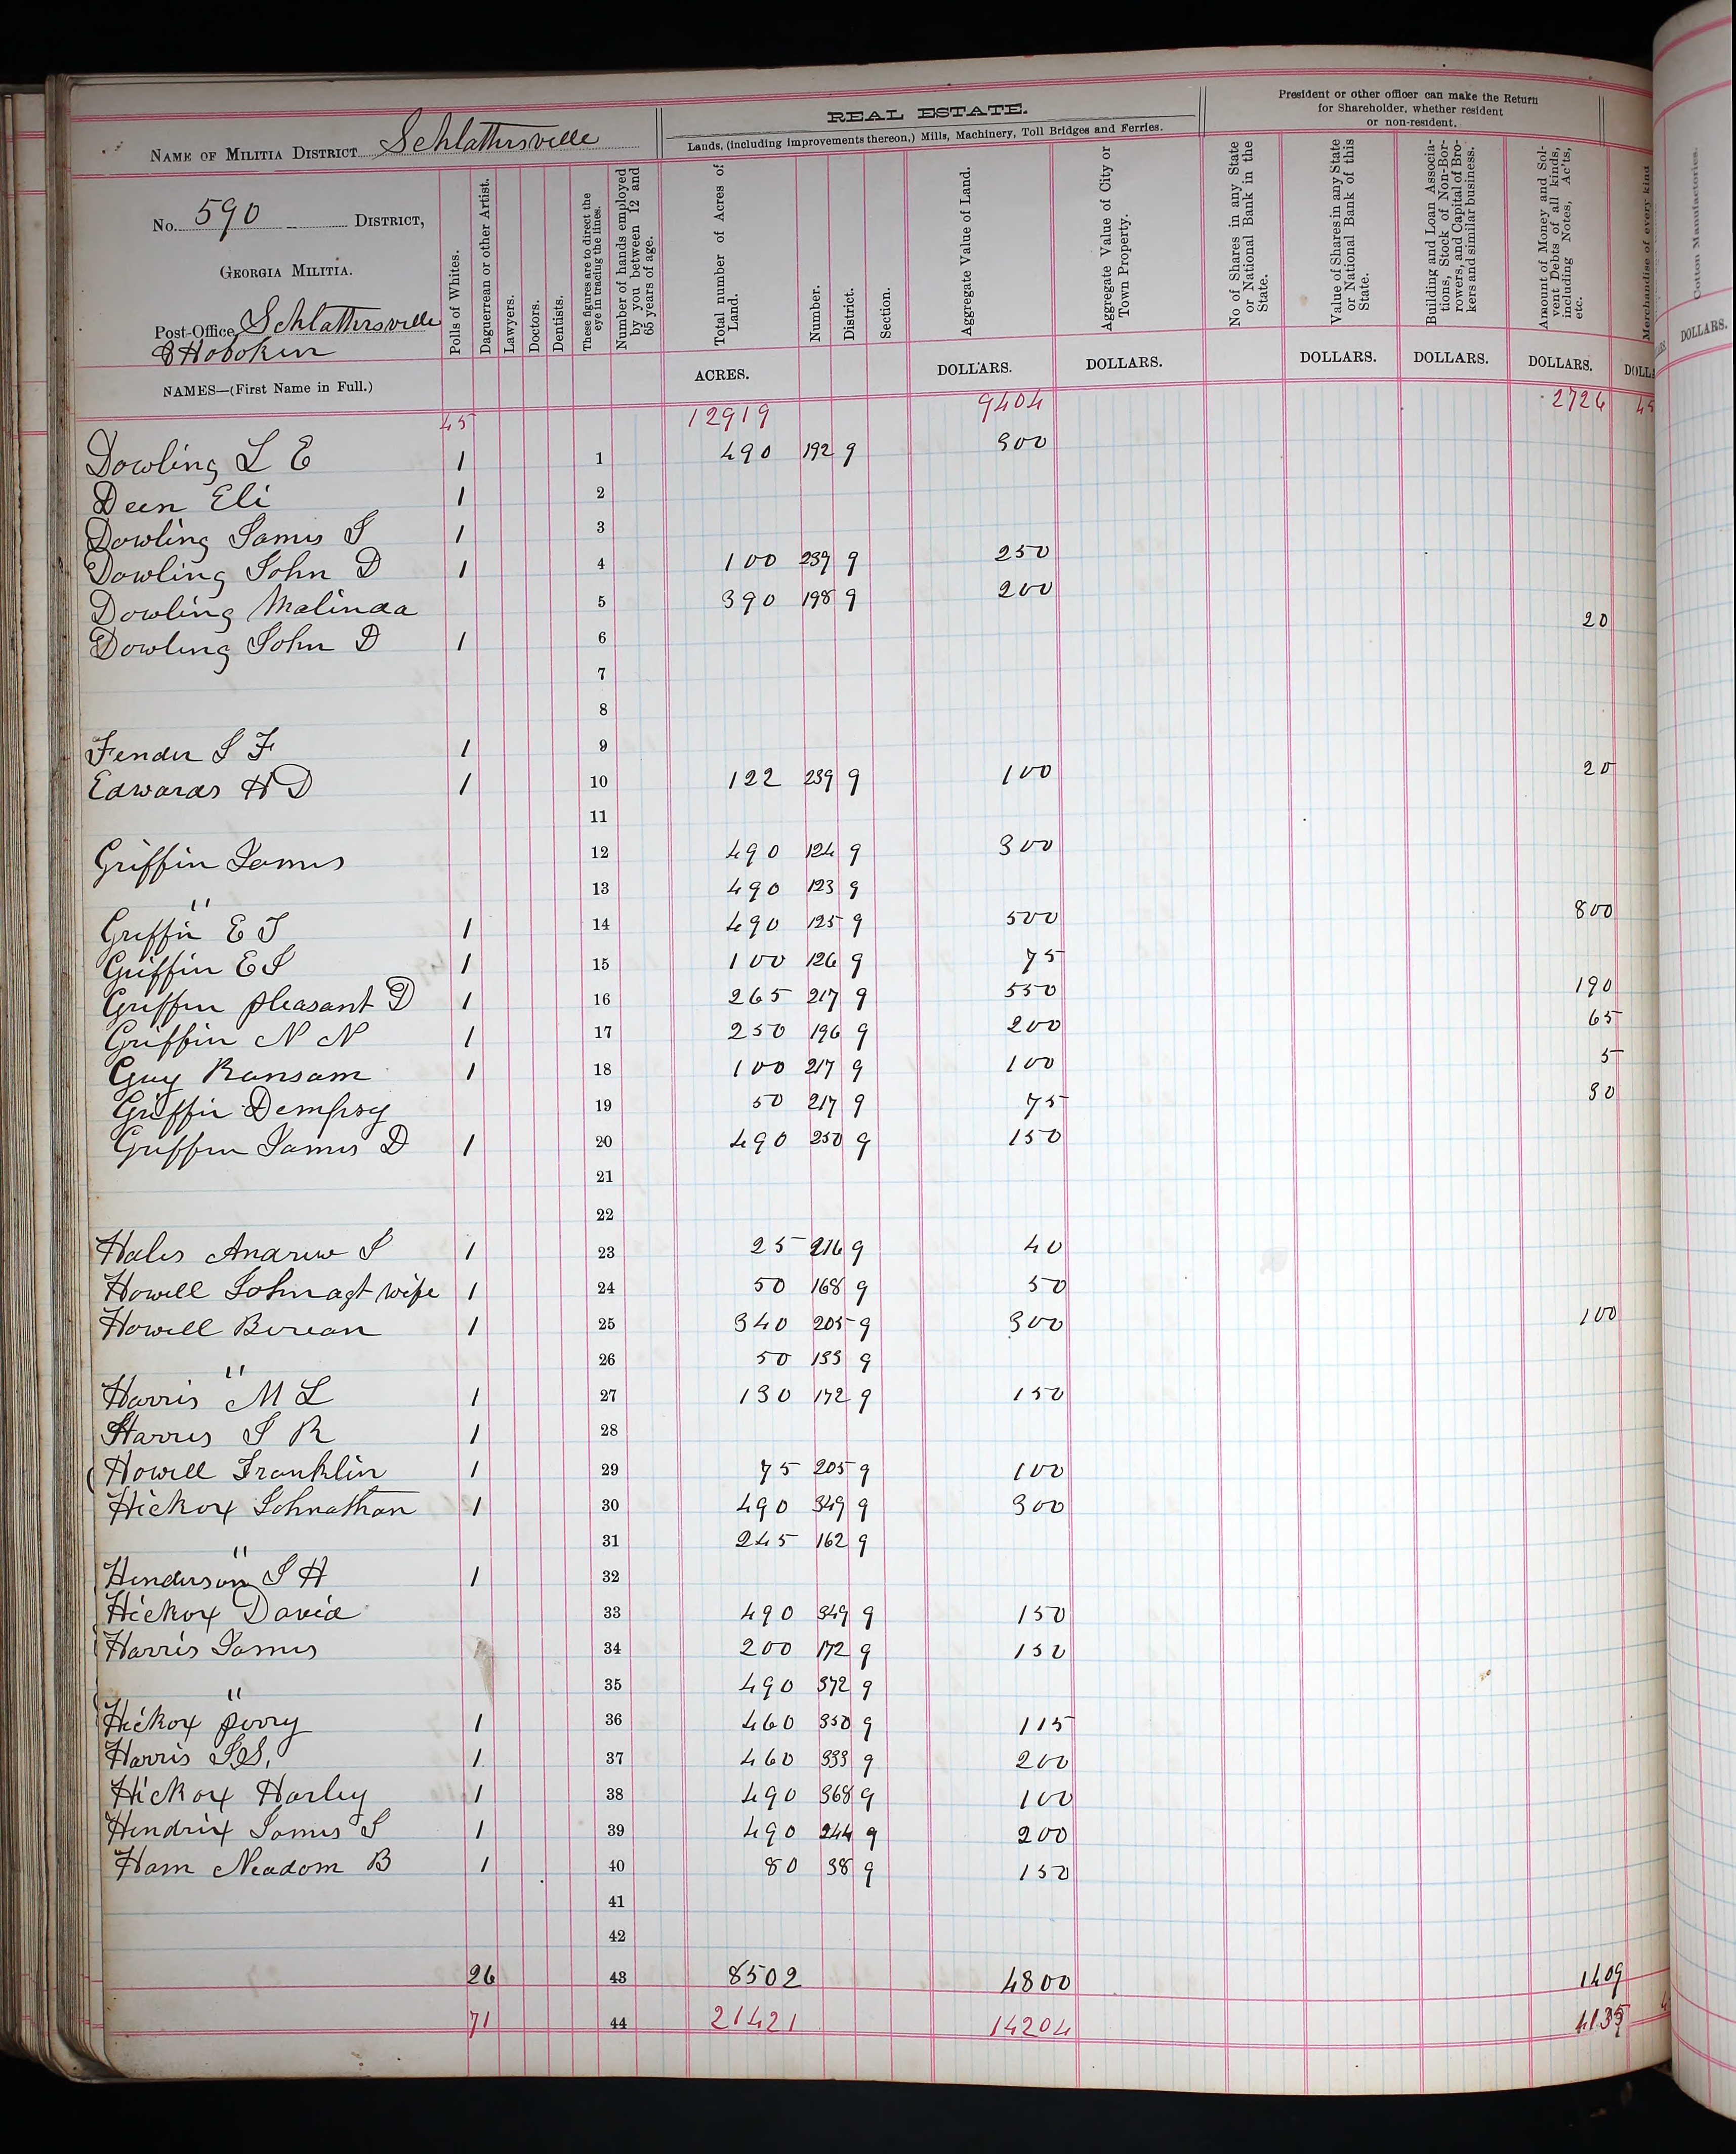 NAME OF MILITIA DISTRICT Schlattersville
No. 590 DISTRICT,
GEORGIA MILITIA.
Post-Office Schlattersville
& Hoboken
NAMES—(First Name in Full.)
Polls of Whites.
Daguerrean or other Artist.
Lawyers.
Doctors.
Dentists.
These figures are to direct the eye in tracing the lines.
Number of hands employed by you between 12 and 65 years of age.
REAL ESTATE.
Lands, (including improvements thereon,) Mills, Machinery, Toll Bridges and Ferries.
Total number of Acres of Land.
Number.
District.
Section.
Aggregate Value of Land.
Aggregate Value of City or Town Property.
President or other officer can make the Return
for Shareholder, whether resident
or non-resident.
No of Shares in any State or National Bank in the State.
Value of Shares in any State or National Bank of this State.
Building and Loan Associations, Stock of Non-Borrowers, and Capital of Brokers and similar business.
Amount of Money and Solvent Debts of all kinds, including Notes, Ac'ts, etc.
Merchandise of every kind
Cotton Manufactories.
ACRES. DOLLARS. DOLLARS. DOLLARS. DOLLARS. DOLLARS. DOLLA DOLLARS.
45 12919 9404 2726 45
Dowling L E 1 1 490 192 9 300
Deen Eli 1 2
Dowling James J 1 3
Dowling John D 1 4 100 239 9 250
Dowling Malinda 5 390 198 9 200
Dowling John D 1 6 20
7
8
Fender J F 1 9
Edwards H D 1 10 122 239 9 100 20
11
Griffin James 12 490 124 9 300
" 13 490 123 9
Griffin E T 1 14 490 125 9 500 800
Griffin E J 1 15 100 126 9 75
Griffin pleasant D 1 16 265 217 9 550 190
Griffin N N 1 17 250 196 9 200 65
Guy Ransom 1 18 100 217 9 100 5
Griffin Dempsy 19 50 217 9 75 30
Griffin James D 1 20 490 250 9 150
21
22
Hales Andrew J 1 23 25 216 9 40
Howell John agt wife 1 24 50 168 9 50
Howell Berean 1 25 340 205 9 300 100
" 26 50 133 9
Harris M L 1 27 130 172 9 150
Harris J R 1 28
Howell Franklin 1 29 75 205 9 100
Hickox Johnathan 1 30 490 349 9 300
" 31 245 162 9
Henderson J H 1 32
Hickox David 33 490 349 9 150
Harris James 34 200 172 9 150
" 35 490 372 9
Hickox perry 1 36 460 350 9 115
Harris J S, 1 37 460 333 9 200
Hickox Harley 1 38 490 368 9 100
Hendrix James J 1 39 490 244 9 200
Ham Neadom B 1 40 80 38 9 150
41
42
26 43 8502 4800 1409
71 44 21421 14204 4135